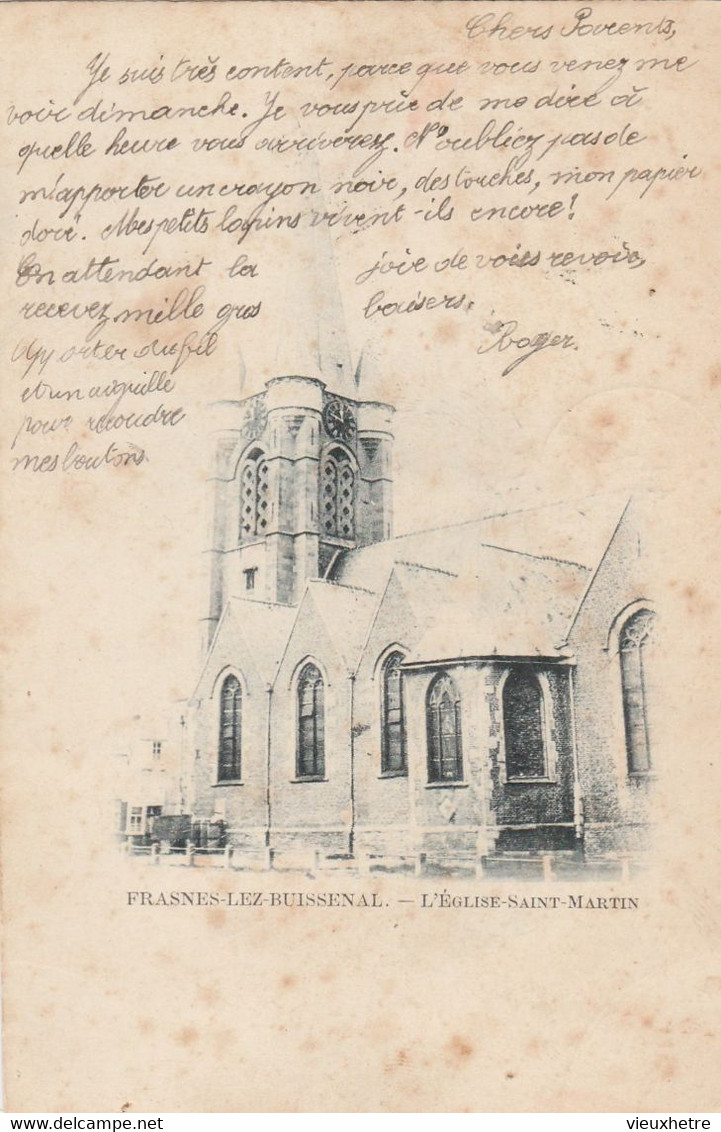 Chers Parents,
Je suis très content, parce que vous venez me
voir dimanche. Je vous prie de me dire à
quelle heure vous arriverez. N'oubliez pas de
m'apporter un crayon noir, des touches, mon papier
doré. Mes petits lapins vivent-ils encore!
En attendant la joie de vous revoir,
recevez mille gros baisers.
Roger.
Apporter du fil
et un aiguille
pour recoudre
mes boutons.
FRASNES-LEZ-BUISSENAL. — L'ÉGLISE-SAINT-MARTIN
vieuxhetre